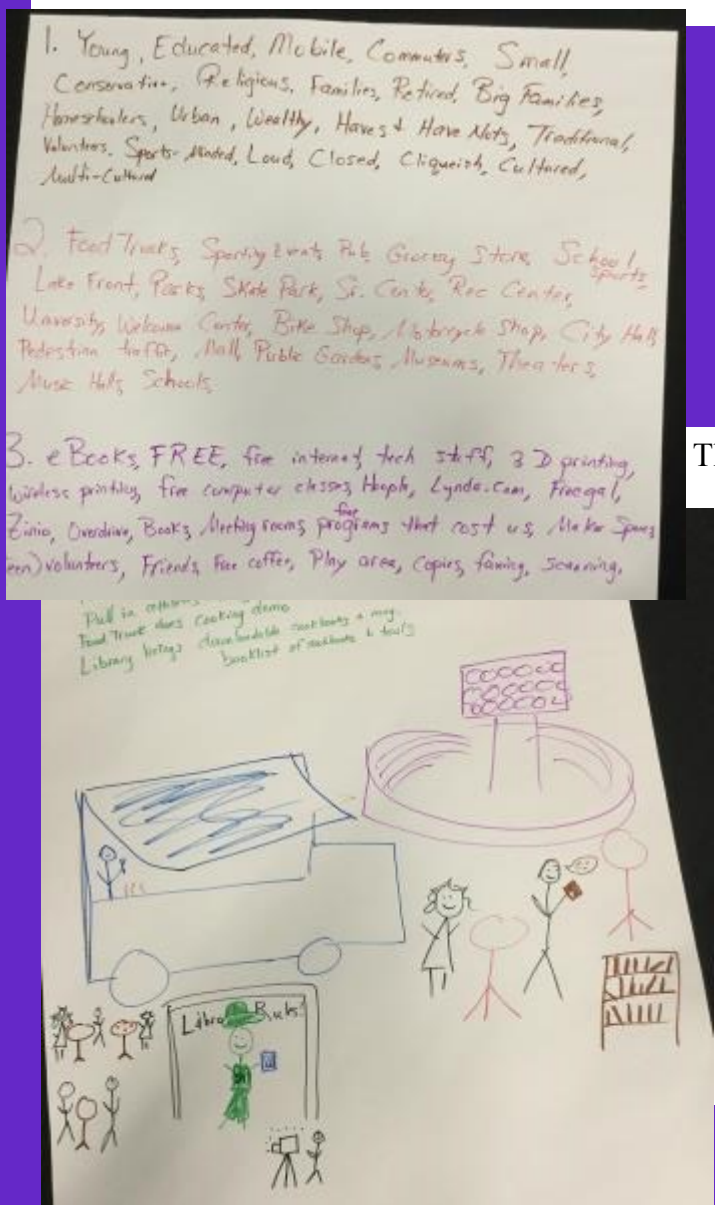 1. Young, Educated, Mobile, Commuters, Small,
Conservative, Religious, Families, Retired, Big Families,
Homeschoolers, Urban, Wealthy, Haves & Have Nots, Traditional,
Volunteers, Sports-Minded, Loud, Closed, Cliqueish, Cultured,
Multi-Cultured
2. Food Trucks, Sporting Events, Pub, Grocery Store, School Sports,
Lake Front, Parks, Skate Park, Sr. Center, Rec Center,
University, Welcome Center, Bike Shop, Motorcycle Shop, City Hall,
Pedestrian traffic, Mall, Public Gardens, Museums, Theaters,
Music Halls, Schools,
3. eBooks, FREE, free internet, tech stuff, 3D printing,
wireless printing, free computer classes, Hoopla, Lynda.com, Freegal,
Zinio, Overdrive, Books, Meeting rooms, free programs that cost us, Maker Spaces
een) volunteers, Friends, Free coffee, Play area, Copies, faxing, Scanning,
Pull in
Food Truck does cooking demo
Library brings downloadable cookbooks & mag.
booklist of cookbooks & tours
Library Rocks!